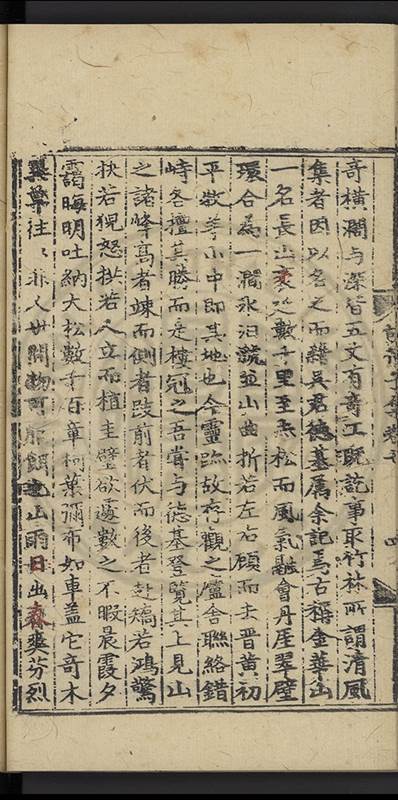 奇橫濶与深皆五文有奇工既訖事取竹林所謂清風
集者因以名之而繇吳君德基属余記焉古稱金華山
一名長山袤延數千里至赤松而風氣融會丹崖翠壁
環合為一澗水汨㶁並山曲折若左右顧而去晋黄初
平牧羊山中即其地也今靈跡故存觀之傍舍聯絡錯
峙各擅其勝而是樓冠之吾甞与徳基登覧其上見山
之諸峰髙者竦而側者跂前者伏而後者赴矯若鴻驚
抉若猊怒拱若人立而植圭璧欲遽數之不暇晨霞夕
靄晦明吐納大松數千百章柯葉彌布如車蓋它奇木
異草往〻非人世間物可形餙山雨日出森爽芬烈